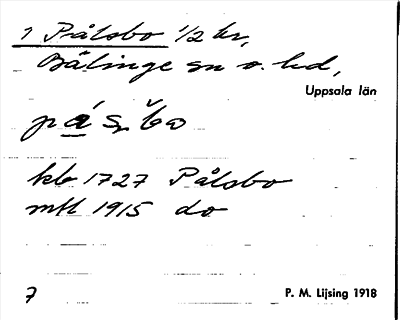 1 Pålsbo 1/2 kr,
Bälinge sn o. hd,
Uppsala län
kb 1727 Pålsbo
mtl 1915 do
7
P. M. Lijsing 1918